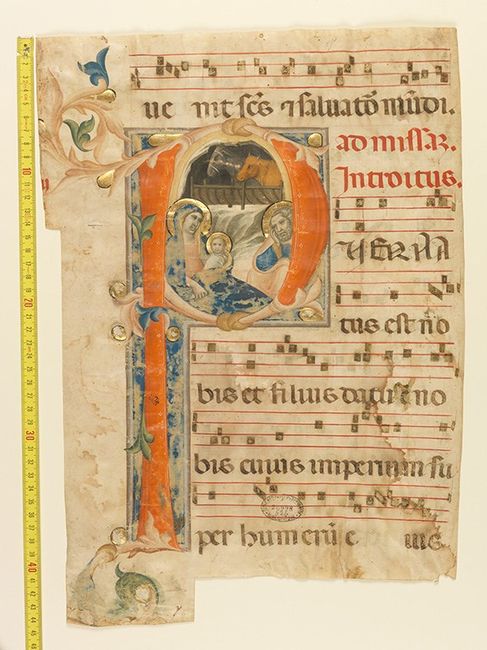 ue nit sc̄s ⁊ saluatō mūdi.
ad missaꝝ.
Introitus.
P VER NA
tus est no
bis et filius datust no
bis cuius imperium su
per humerū e ius